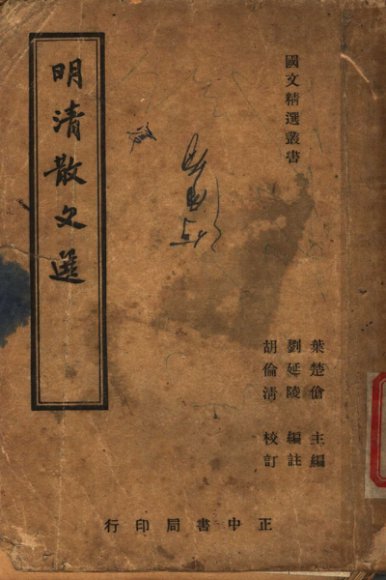 國文精選叢書
葉楚傖 主編
劉延陵 編註
胡倫清 校訂
明清散文選
正中書局印行